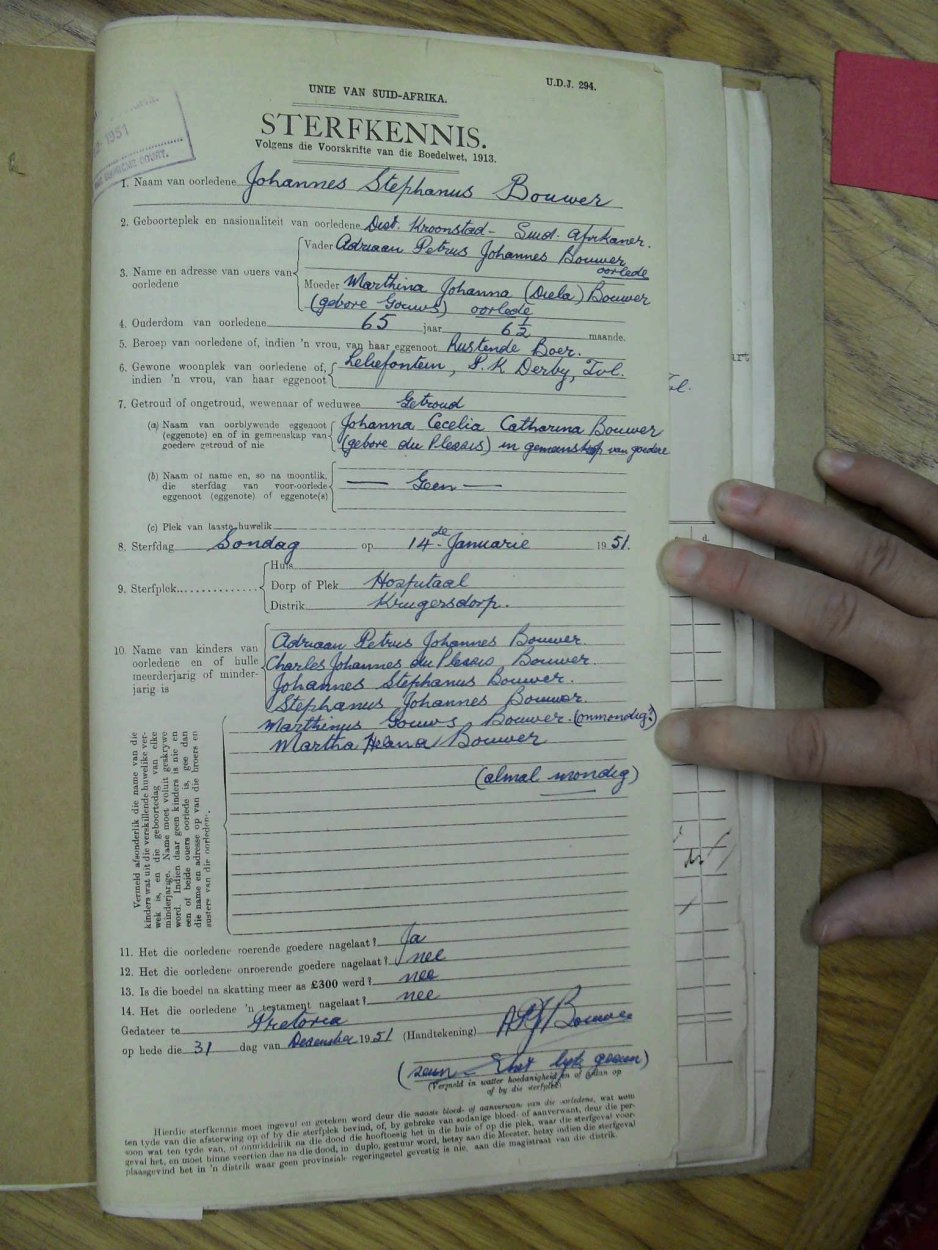 U.D.J. 294.
UNIE VAN SUID-AFRIKA.
STERFKENNIS.
Volgens die Voorskrifte van die Boedelwet, 1913.
1951
COURT.
1. Naam van oorledene Johannes Stephanus Bouwer
2. Geboorteplek en nasionaliteit van oorledene Dist. Kroonstad - Suid. Afrikaner.
3. Name en adresse van ouers van oorledene
Vader Adriaan Petrus Johannes Bouwer
oorlede
Moeder Marthina Johanna (Diela) Bouwer
(gebore Gouws) oorlede
4. Ouderdom van oorledene 65 jaar 6½ maande.
5. Beroep van oorledene of, indien 'n vrou, van haar eggenoot Rustende Boer.
6. Gewone woonplek van oorledene of, indien 'n vrou, van haar eggenoot
Leliefontein, P.K Derby, Tvl.
7. Getroud of ongetroud, wewenaar of weduwee Getroud
(a) Naam van oorblywende eggenoot (eggenote) en of in gemeenskap van goedere getroud of nie
Johanna Cecelia Catharina Bouwer
(gebore du Plessis) in gemeenskap van goedere
(b) Naam of name en, so na moontlik, die sterfdag van voor-oorlede eggenoot (eggenote) of eggenote(s)
— Geen —
(c) Plek van laaste huwelik
8. Sterfdag Sondag op 14de Januarie 1951.
9. Sterfplek
Huis
Dorp of Plek Hospitaal
Distrik Krugersdorp.
10. Name van kinders van oorledene en of hulle meerderjarig of minderjarig is
Adriaan Petrus Johannes Bouwer.
Charles Johannes du Plessis Bouwer.
Johannes Stephanus Bouwer.
Stephanus Johannes Bouwer
Marthinus Gouws Bouwer. (onmondig?)
Martha Helena Bouwer
(almal mondig)
Vermeld afsonderlik die name van die
kinders wat uit die verskillende huwelike ver-
wek is, en die geboortedag van elke
minderjarige. Name moet voluit geskrywe
word. Indien daar geen kinders is nie en
een of beide ouers oorlede is, gee dan
die name en adresse op van die broers en
susters van die oorledene.
11. Het die oorledene roerende goedere nagelaat? Ja
12. Het die oorledene onroerende goedere nagelaat? nee
13. Is die boedel na skatting meer as £300 werd? nee
14. Het die oorledene 'n testament nagelaat? nee
Gedateer te Pretoria
op hede die 31 dag van Desember 1951 (Handtekening) APJ Bouwer
(seun - het lyk gesien)
(Vermeld in watter hoedanigheid en of aan op
of by die sterfplek)
Hierdie sterfkennis moet ingevul en geteken word deur die naaste bloed- of aanverwant van die oorledene, wat
ten tyde van die afsterwing op of by die sterfplek bevind, of, by gebreke van sodanige bloed- of aanverwant, deur die per-
soon wat ten tyde van, of onmiddelik na die dood die hooftoesig het in die huis of op die plek, waar die sterfgeval voor-
geval het, en moet binne veertien dae na die dood, in duplo, gestuur word, hetsy aan die Meester, hetsy indien die sterfgeval
plaasgevind het in 'n distrik waar geen provinsiale regeringsetel gevestig is nie, aan die magistraat van die distrik.
d.